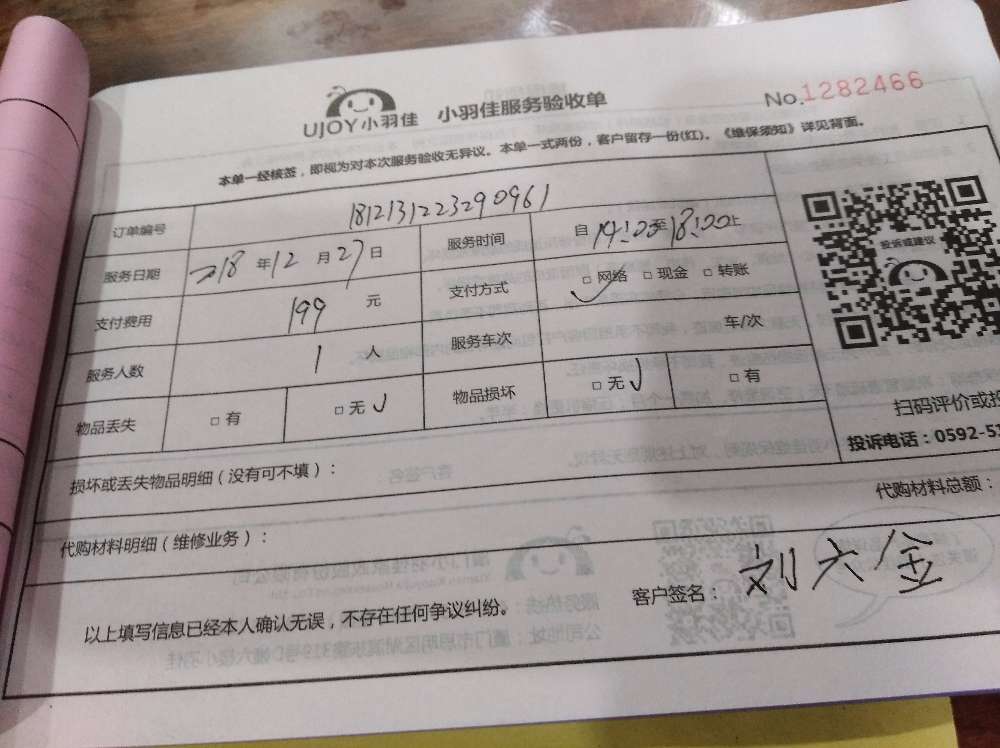 UJOY小羽佳 小羽佳服务验收单 No.1282466
本单一经核签，即视为对本次服务验收无异议。本单一式两份，客户留存一份(红)。《维保须知》详见背面。
订单编号 1812131223290961
服务日期 218年12月27日 服务时间 自14:00至18:00止
支付费用 199元 支付方式 □网络 □现金 □转账
服务人数 1人 服务车次 车/次
物品丢失 □有 □无 物品损坏 □无 □有
投诉或建议
扫码评价或投
投诉电话：0592-51
损坏或丢失物品明细（没有可不填）：
代购材料明细（维修业务）： 代购材料总额：
以上填写信息已经本人确认无误，不存在任何争议纠纷。 客户签名：刘六金